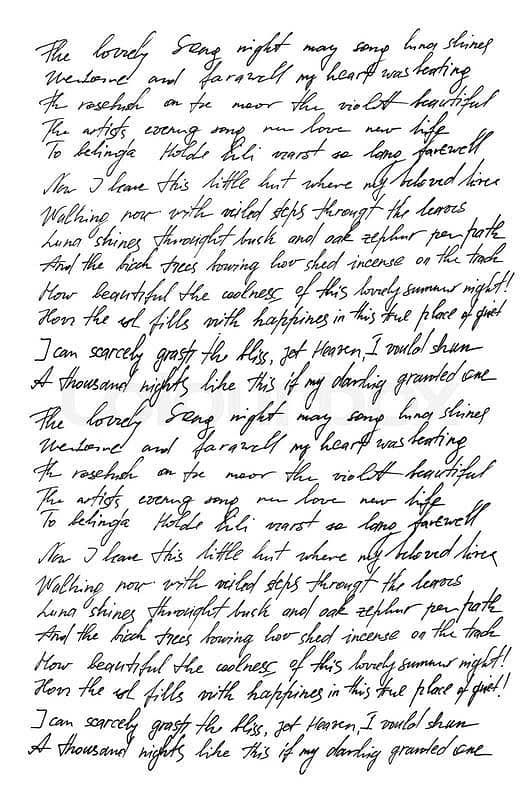 The lovely Song night may song luna shines
Welcome and farawell my heart was beating
The rosebush on the moor the violett beautiful
The artists evening song new love new life
To belinda Holde Lili warst so long farewell
Now I leave this little hut where my beloved lives
Walking now with veiled steps througt the leaves
Luna shines throught bush and oak zephur per path
And the birch trees bowing low shed incense on the track
How beautiful the coolness of this lovely summer night!
How the sol fills with happines in this true place of quiet
I can scarcely grasp the bliss, jet Heaven, I would shun
A thousand nights like this if my darling granted one
The lovely Song night may song luna shines
Welcome and farawell my heart was beating
The rosebush on the moor the violett beautiful
The artists evening song new love new life
To belinda Holde Lili warst so long farewell
Now I leave this little hut where my beloved lives
Walking now with veiled steps througt the leaves
Luna shines throught bush and oak zephur per path
And the birch trees bowing low shed incense on the track
How beautiful the coolness of this lovely summer night!
How the sol fills with happines in this true place of quiet!
I can scarcely grasp the bliss, jet Heaven, I would shun
A thousand nights like this if my darling granted one